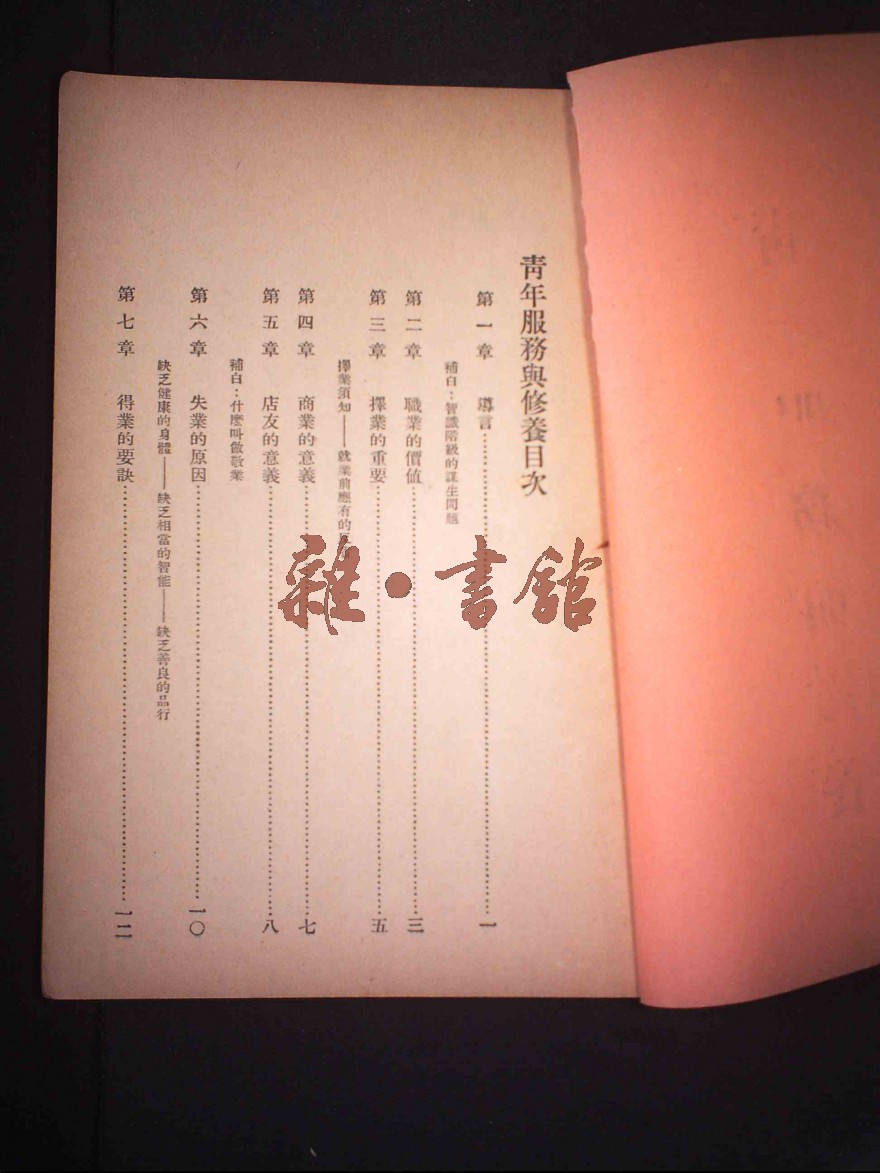 青年服務與修養目次
第一章 導言……一
補白：智識階級的謀生問題
第二章 職業的價值……三
第三章 擇業的重要……五
擇業須知——就業前應有的
第四章 商業的意義……七
第五章 店友的意義……八
補白：什麼叫做敬業
第六章 失業的原因……一〇
缺乏健康的身體——缺乏相當的智能——缺乏善良的品行
第七章 得業的要訣……一二
雜·書館